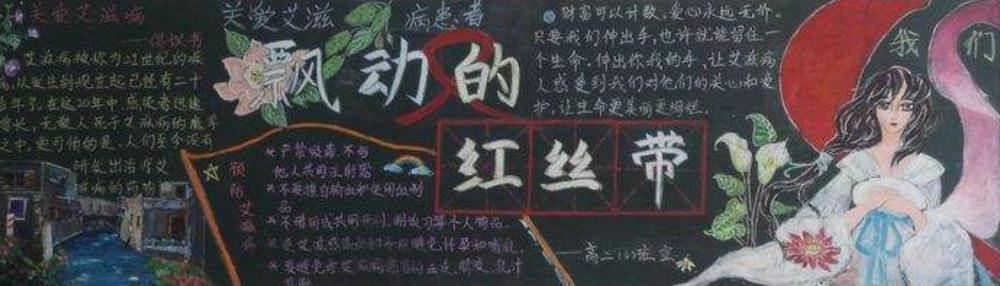 关爱艾滋病
——倡议书
艾滋病被称为21世纪的
从发生到现在起已经有二十
多年了,在这20年中,感染者迅速
增长,无数人死于艾滋病的
之中,更可怕的是,人们至今没有
研发出治疗艾
病的药物
关爱艾滋病患者
飘动的
红丝带
预防艾滋病
*严禁吸毒,不与
他人共用注射器
*不要擅自输血和使用血制
品
*不借用或共用牙刷、剃须刀等个人物品。
*要避免
精液、乳汁
财富可以计数,爱心永远无价。
只要我们伸出手,也许就能留住一
个生命。伸出你我的手,让艾滋病
人感受到我们对他们的关心和爱
护,让生命更美丽更绚烂。
——高二(1)班宣
我们